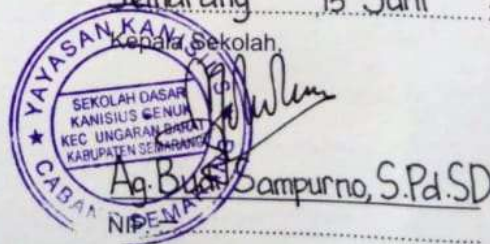 Semarang 15 Juni
Kepala Sekolah,
YAYASAN KANISIUS
SEKOLAH DASAR
KANISIUS GENUK
KEC UNGARAN BARAT
KABUPATEN SEMARANG
CABANG SEMARANG
Ag. Budi Sampurno, S.Pd.SD
NIP.